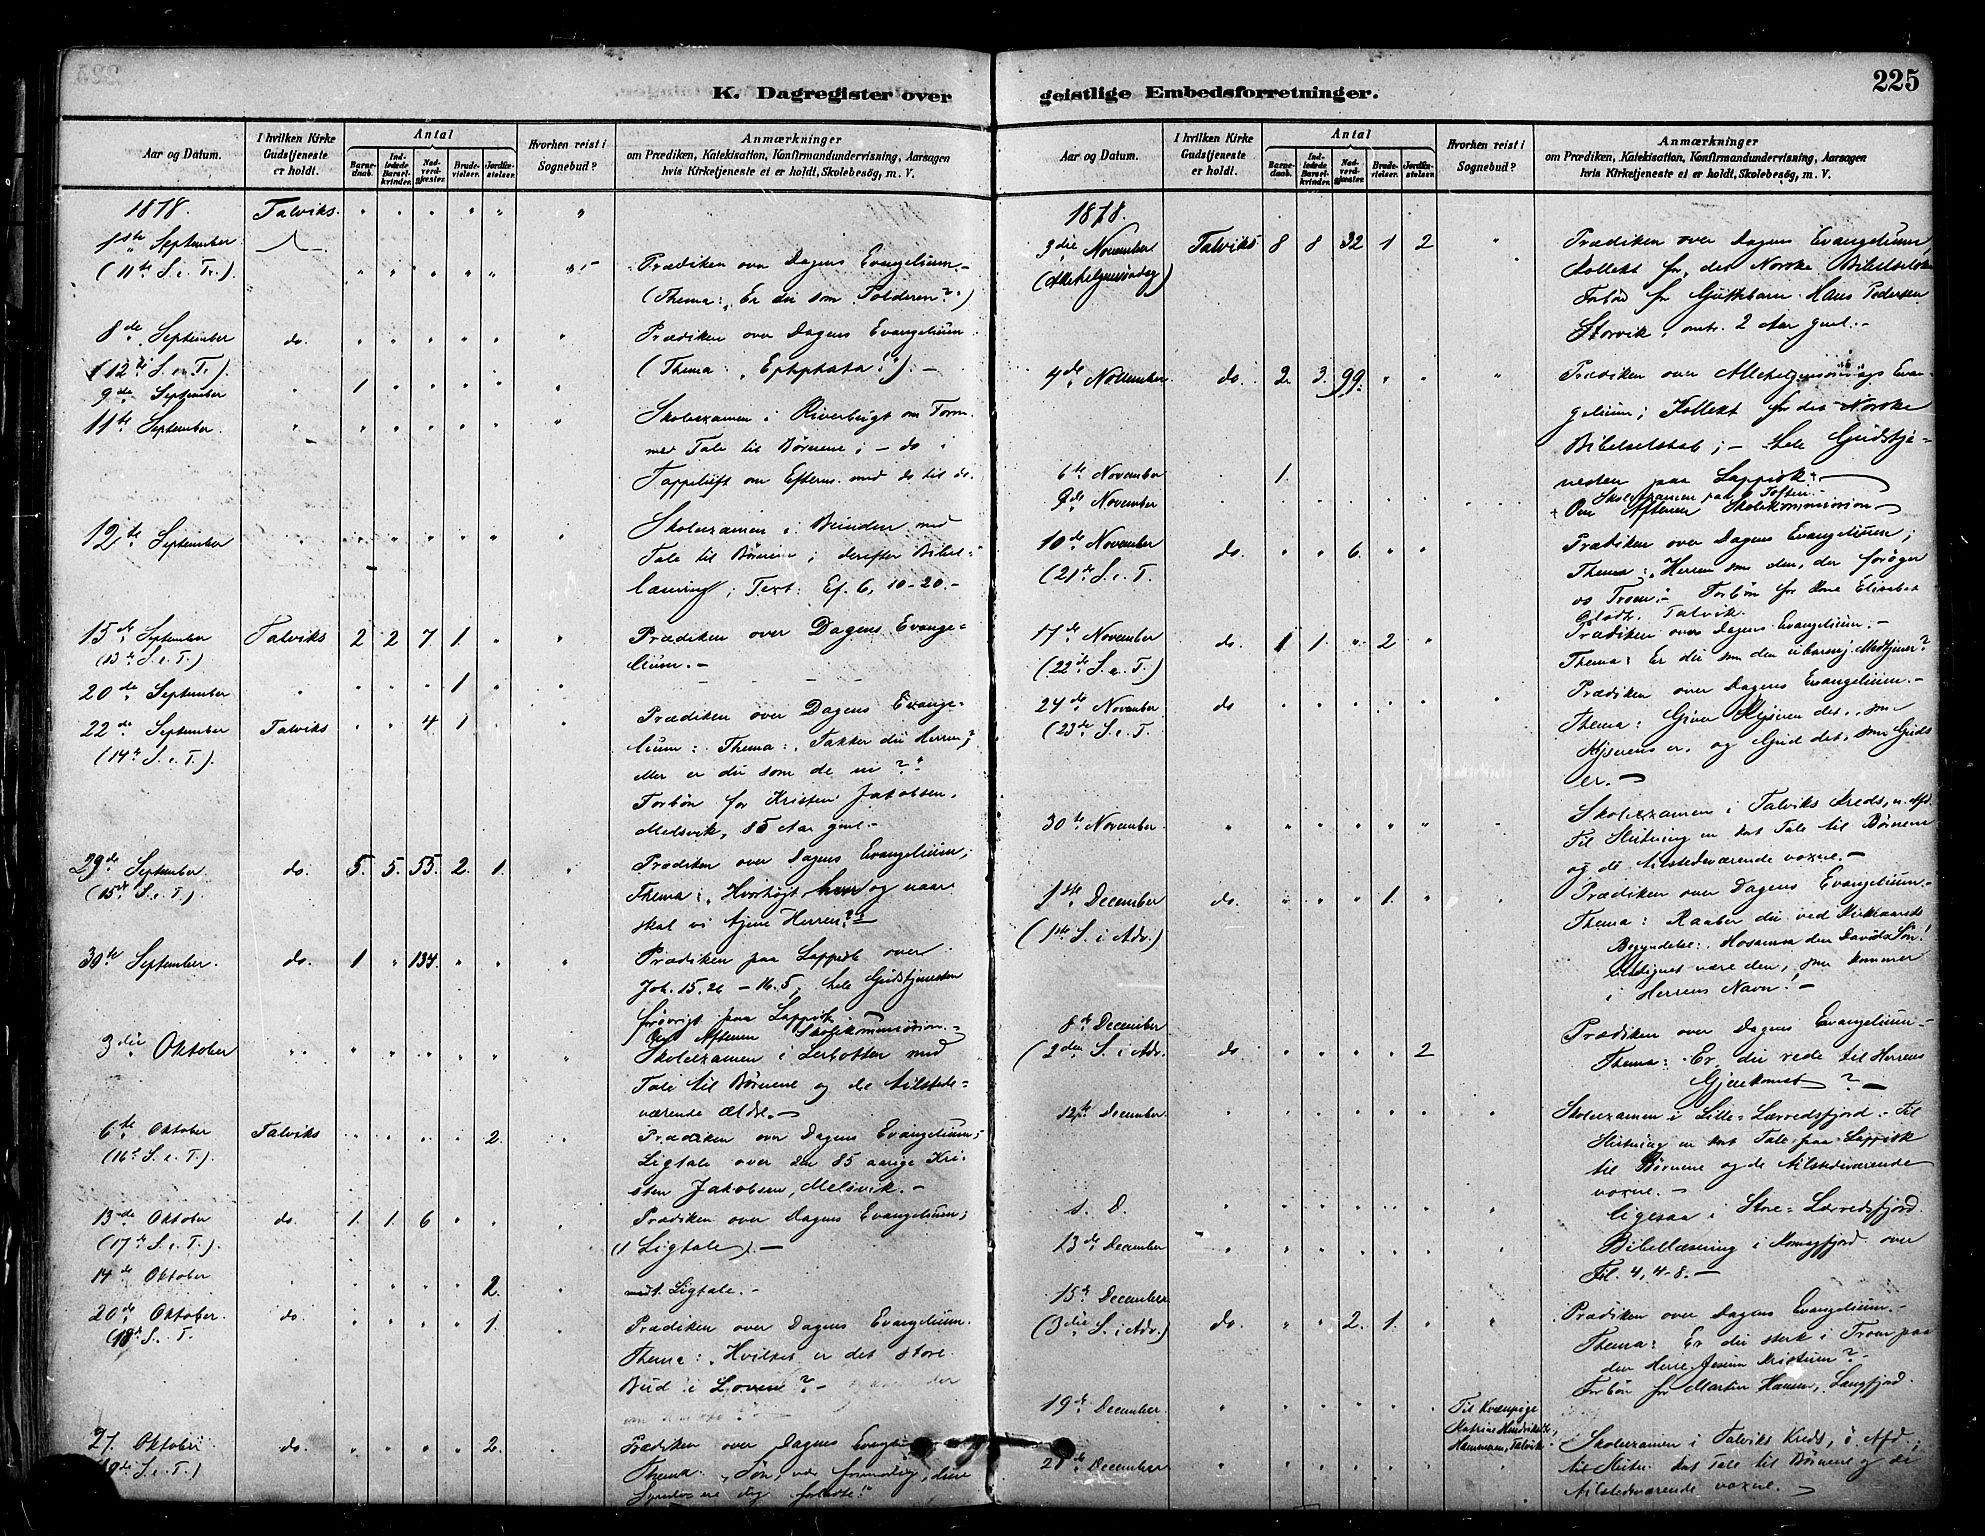 225
K. Dagregister over
geistlige Embedsforretninger.
Aar og Datum.
I hvilken Kirke Gudstjeneste er holdt.
Antal
Barnedaab.
Indledede Barselkvinder.
Nadverdgjæster.
Brudevielser.
Jordfæstelser.
Hvorhen reist i Sognebud?
Anmærkninger
om Prædiken, Katekisation, Konfirmandundervisning, Aarsagen
hvis Kirketjeneste ei er holdt, Skolebesøg, m. V.
1878. Talviks.
1ste September
(11te S. e. Tr.) Prædiken over Dagens Evangelium.-
(Thema: "Er du som Tolderen?")
8de September do. Prædiken over Dagens Evangelium
(12te S. e. T.) (Thema: "Ephphata!"). -
9de September 1
11te September. Skoleexamen i Riverbugt om Form.
med Tale til Børnene; - do i
Tappeluft om Efterm. med do til do.
12te September Skoleexamen i Bunden med
Tale til Børnene; derefter Bibel=
læsning; Text: Ef. 6, 10-20.-
15de September Talviks 2 2 7 1 Prædiken over Dagens Evange=
(13de S. e. T.) lium.-
20de September 1
22de September Talviks 4 1 Prædiken over Dagens Evange=
(14de S. e. T.) lium: Thema: "Takker du Herren,
eller er du som de ni?"
Forbøn for Kristen Jakobsen,
Melsvik, 85 Aar gml.-
29de September do. 5. 5. 55. 2. 1. Prædiken over Dagens Evangelium;
(15de S. e. T.) Thema: "Hvorhøgt og naar
skal vi tjene Herren?"
30te September. do. 1 134. Prædiken paa Lappisk over
Joh. 15.26 - 16.5; hele Gudstjenesten
forøvrigt paa Lappisk.
Om Aftenen Skolekommission.-
3die Oktober Skoleexamen i Lerbotten med
Tale til Børnene og de tilstede=
værende ældre.-
6te Oktober Talviks 2. Prædiken over Dagens Evangelium;
(16de S. e. T.) Ligtale over den 85 aarige Kri=
sten Jakobsen, Melsvik.-
13de Oktober do. 1. 1. 6 Prædiken over Dagens Evangelium;
(17de S. e. T.) (1 Ligtale).-
14de Oktober 2. med 1. Ligtale.-
20de Oktober. do. 1. Prædiken over Dagens Evangelium.
(18de S. e. T. Thema: "Hvilket er det store
Bud i Loven?-
27. Oktober do. 2. Prædiken over Dagens
(19de S. e. T) Thema. "Søn, vær frimodig, dine
Synder ere dig forladte!"
Aar og Datum.
I hvilken Kirke Gudstjeneste er holdt.
Antal
Barnedaab.
Indledede Barselkvinder.
Nadverdgjæster.
Brudevielser.
Jordfæstelser.
Hvorhen reist i Sognebud?
Anmærkninger
om Prædiken, Katekisation, Konfirmandundervisning, Aarsagen
hvis Kirketjeneste ei er holdt, Skolebesøg, m. V.
1878.
3die November Talviks 8 8 32 1 2 Prædiken over Dagens Evangelium,
(Allehelgensøndag) Kollekt for det Norske Bibelselskab
Forbøn for Guttebarn Hans Pedersen
Storvik, omtr. 2 Aar gml.-
4de November do. 2. 3. 99. Prædiken over Allehelgensøndags Evan=
gelium; Kollekt for det Norske
Bibelselskab; - hele Gudstje=
nesten paa Lappisk.
6te November 1
9de November Skoleexamen paa Toften.-
Om Aftenen Skolekommission
10de November do. 6. Prædiken over Dagens Evangelium;
(21de S. e. T. Thema: "Herren som den, der forøger
vo Troen.- Forbøn for Elisabet
Talvik.
17de November do. 1 1. 2 Prædiken over Dagens Evangelium.-
(22de S. e. T.) Thema: Er du som den ubarmj. Medtjener?
24de November do Prædiken over Dagens Evangelium.-
(23de S. e. T. Thema: Giver Kejseren det, som
Kejserens er, og Gud det, som Guds
er.-
30te November. Skoleexamen i Talviks Kreds, n. Afd.
Til Slutning en kort Tale til Børnene
og de tilstedeværende voxne.-
1ste December do. 1. Prædiken over Dagens Evangelium.-
(1ste S. i Adv.) Thema: Raaber du ved Kirkeaarets
Begyndelse: Hosanna den Davids Søn!
velsignet være den, som kommer
i Herrens Navn!-
8de December Prædiken over Dagens Evangelium-
(2den S. i Adv. do 2 Thema: Er du rede til Herrens
Gjenkomst?-
12te December Skoleexamen i Lille=Lærredsfjord - Til
Slutning en kort Tale paa Lappisk
til Børnene og de tilstedeværende
voxne.-
s. D. ligesaa i Store=Lærredsfjord.
13de December Bibellæsning i Komagfjord over
Fil. 4, 4-8.-
15de December Prædiken over Dagens Evangelium.-
(3die S. i Adv.) do. 2. 1. Thema: Er du sterk i Troen paa
den Herre Jesum Kristum?-
Forbøn for Martin Hansen, Langfjord.
19de December. Til Kvænpige
Katrine Hendriksdtr,
Hammeren, Talvik
21de December Skoleexamen i Talviks Kreds, ö. Afd.;
til Slutn. kort Tale til Børnene og de
tilstedeværende voxne.